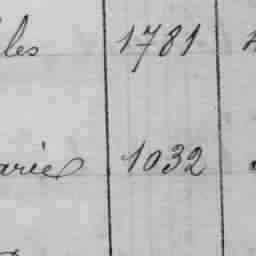 les 1781
arie 1032